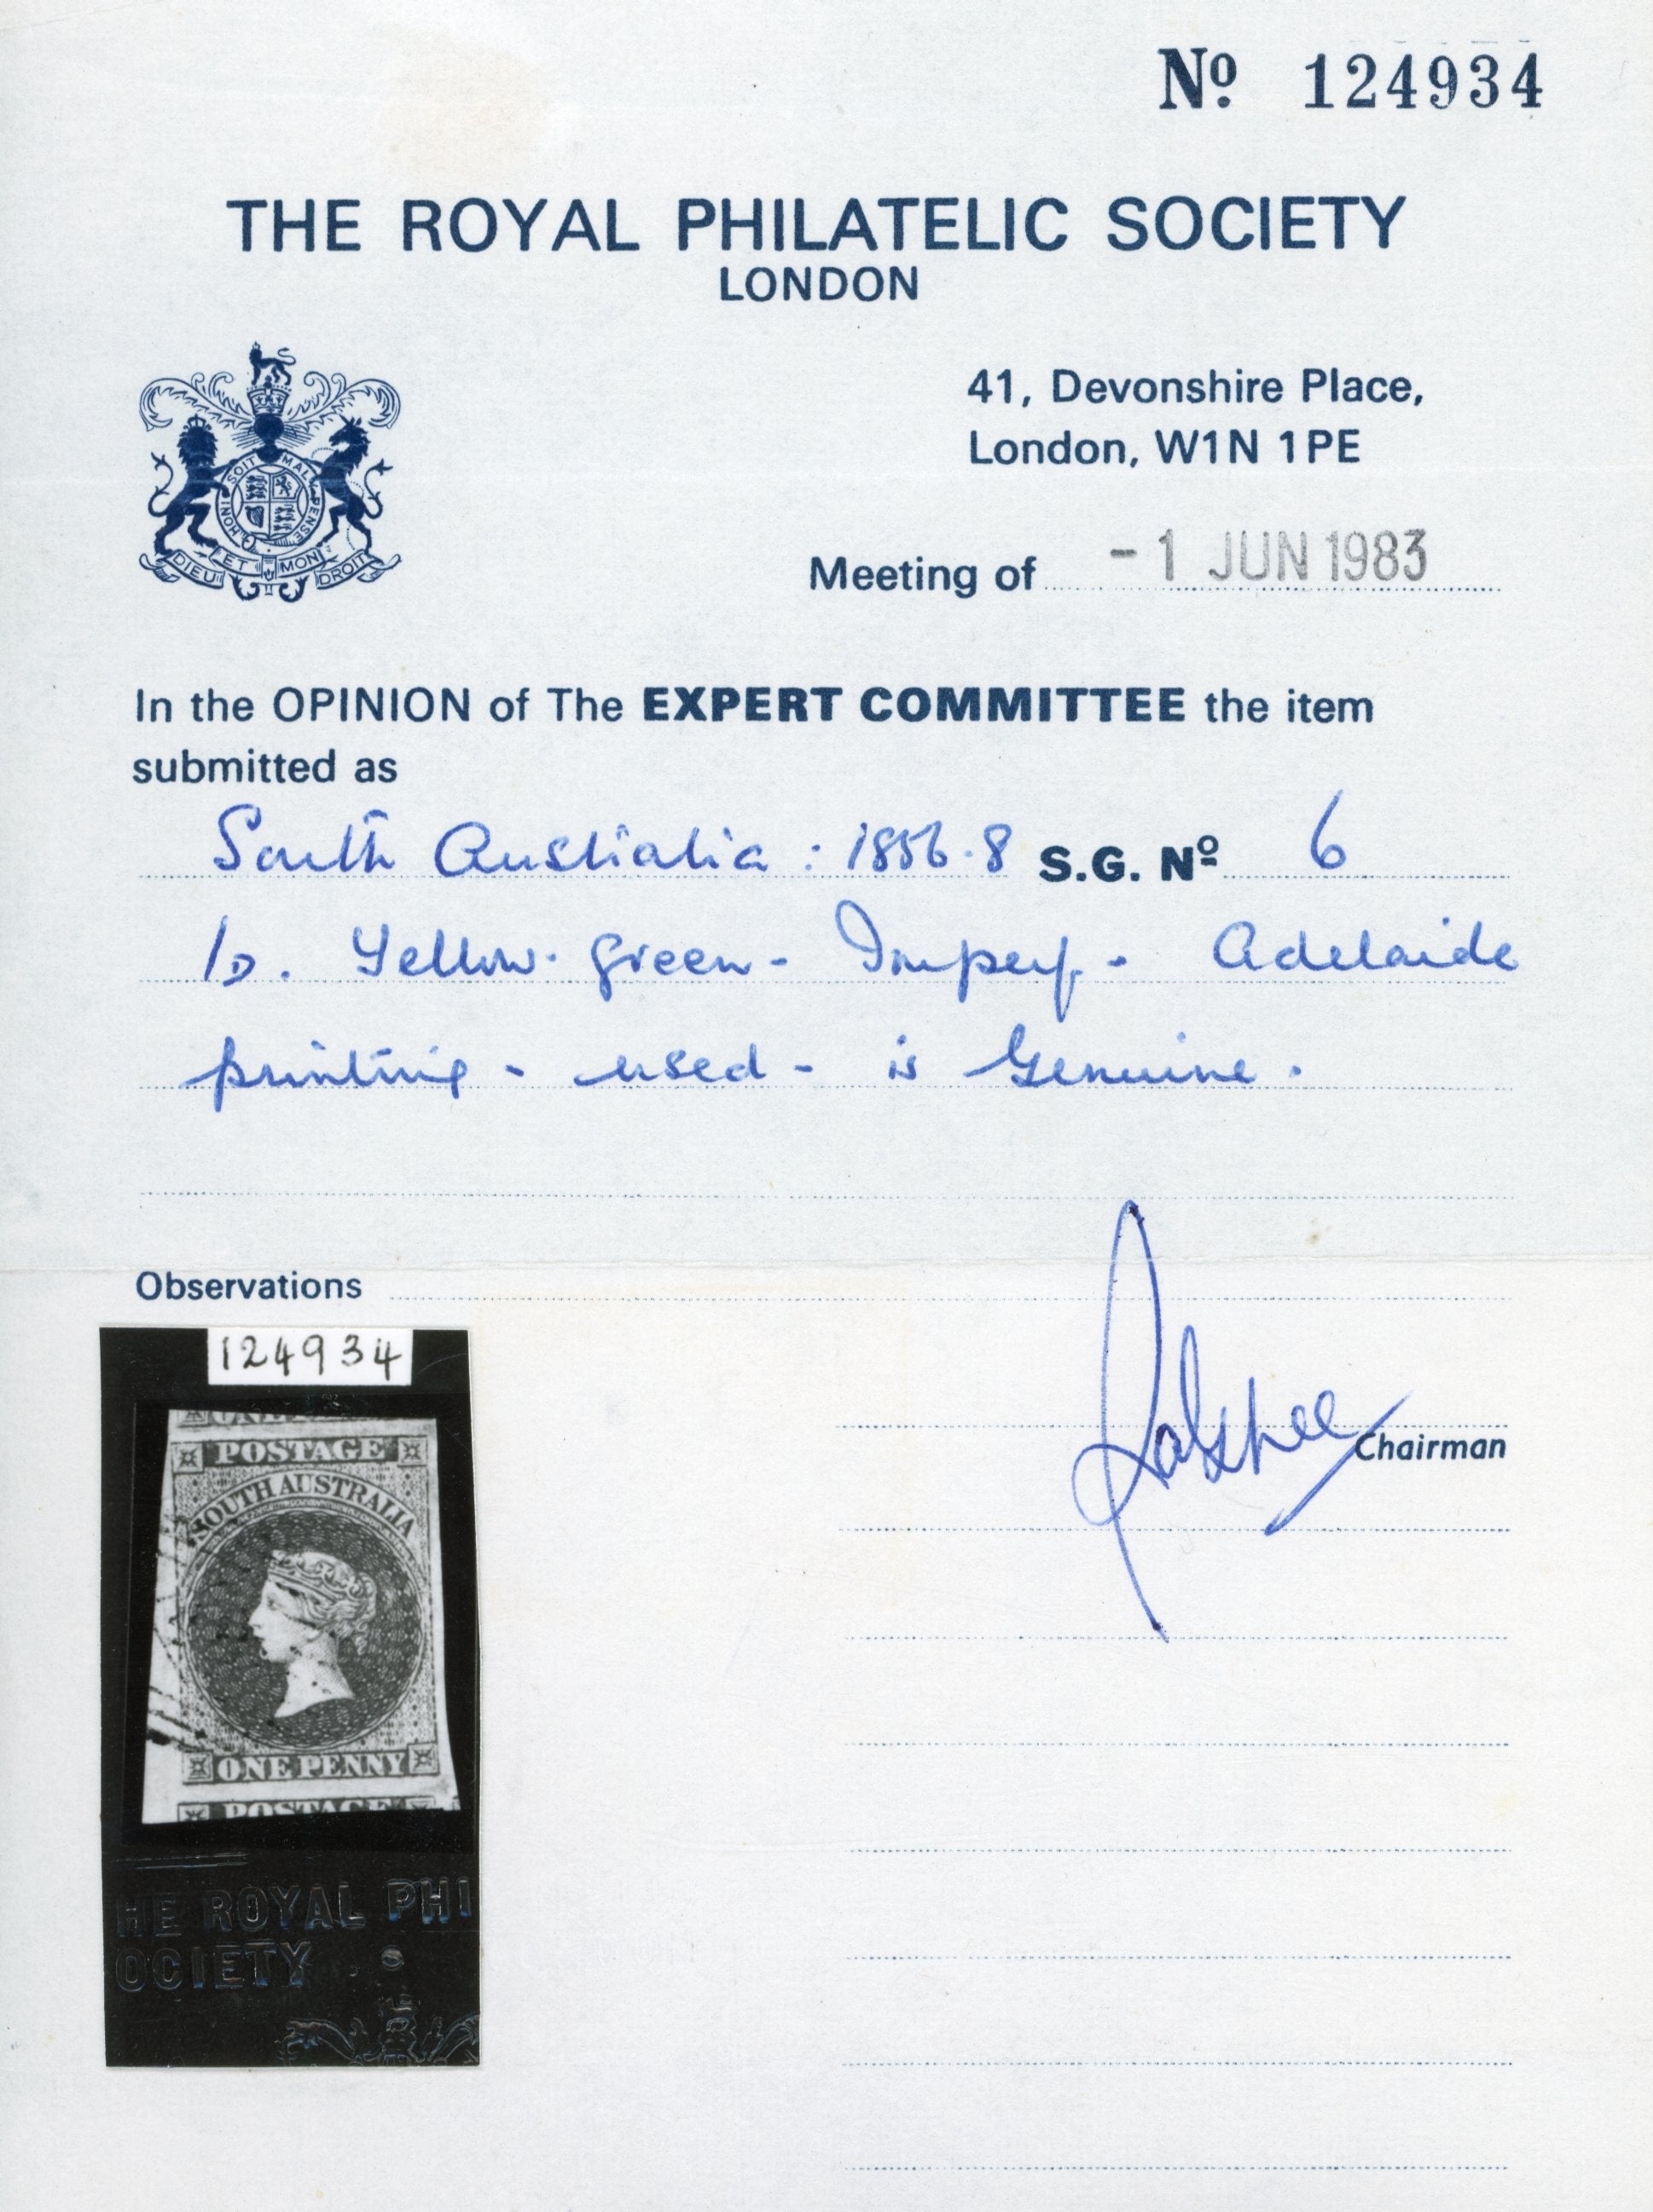 Nº 124934
THE ROYAL PHILATELIC SOCIETY
LONDON
41, Devonshire Place,
London, W1N 1PE
HONI SOIT MAL PENSE
DIEU ET MON DROIT
Meeting of - 1 JUN 1983
In the OPINION of The EXPERT COMMITTEE the item
submitted as
South Australia : 1856-8 S.G. Nº 6
1D. Yellow-green - Imperf. - Adelaide
printing - used - is Genuine.
Observations
124934
POSTAGE
SOUTH AUSTRALIA
ONE PENNY
POSTAGE
Chairman
HE ROYAL PHI
OCIETY